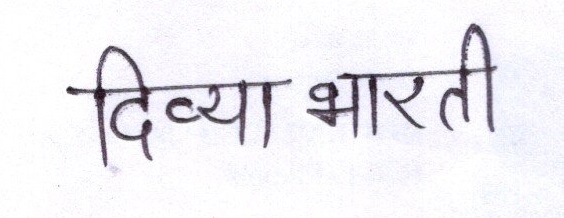 दिव्या भारती